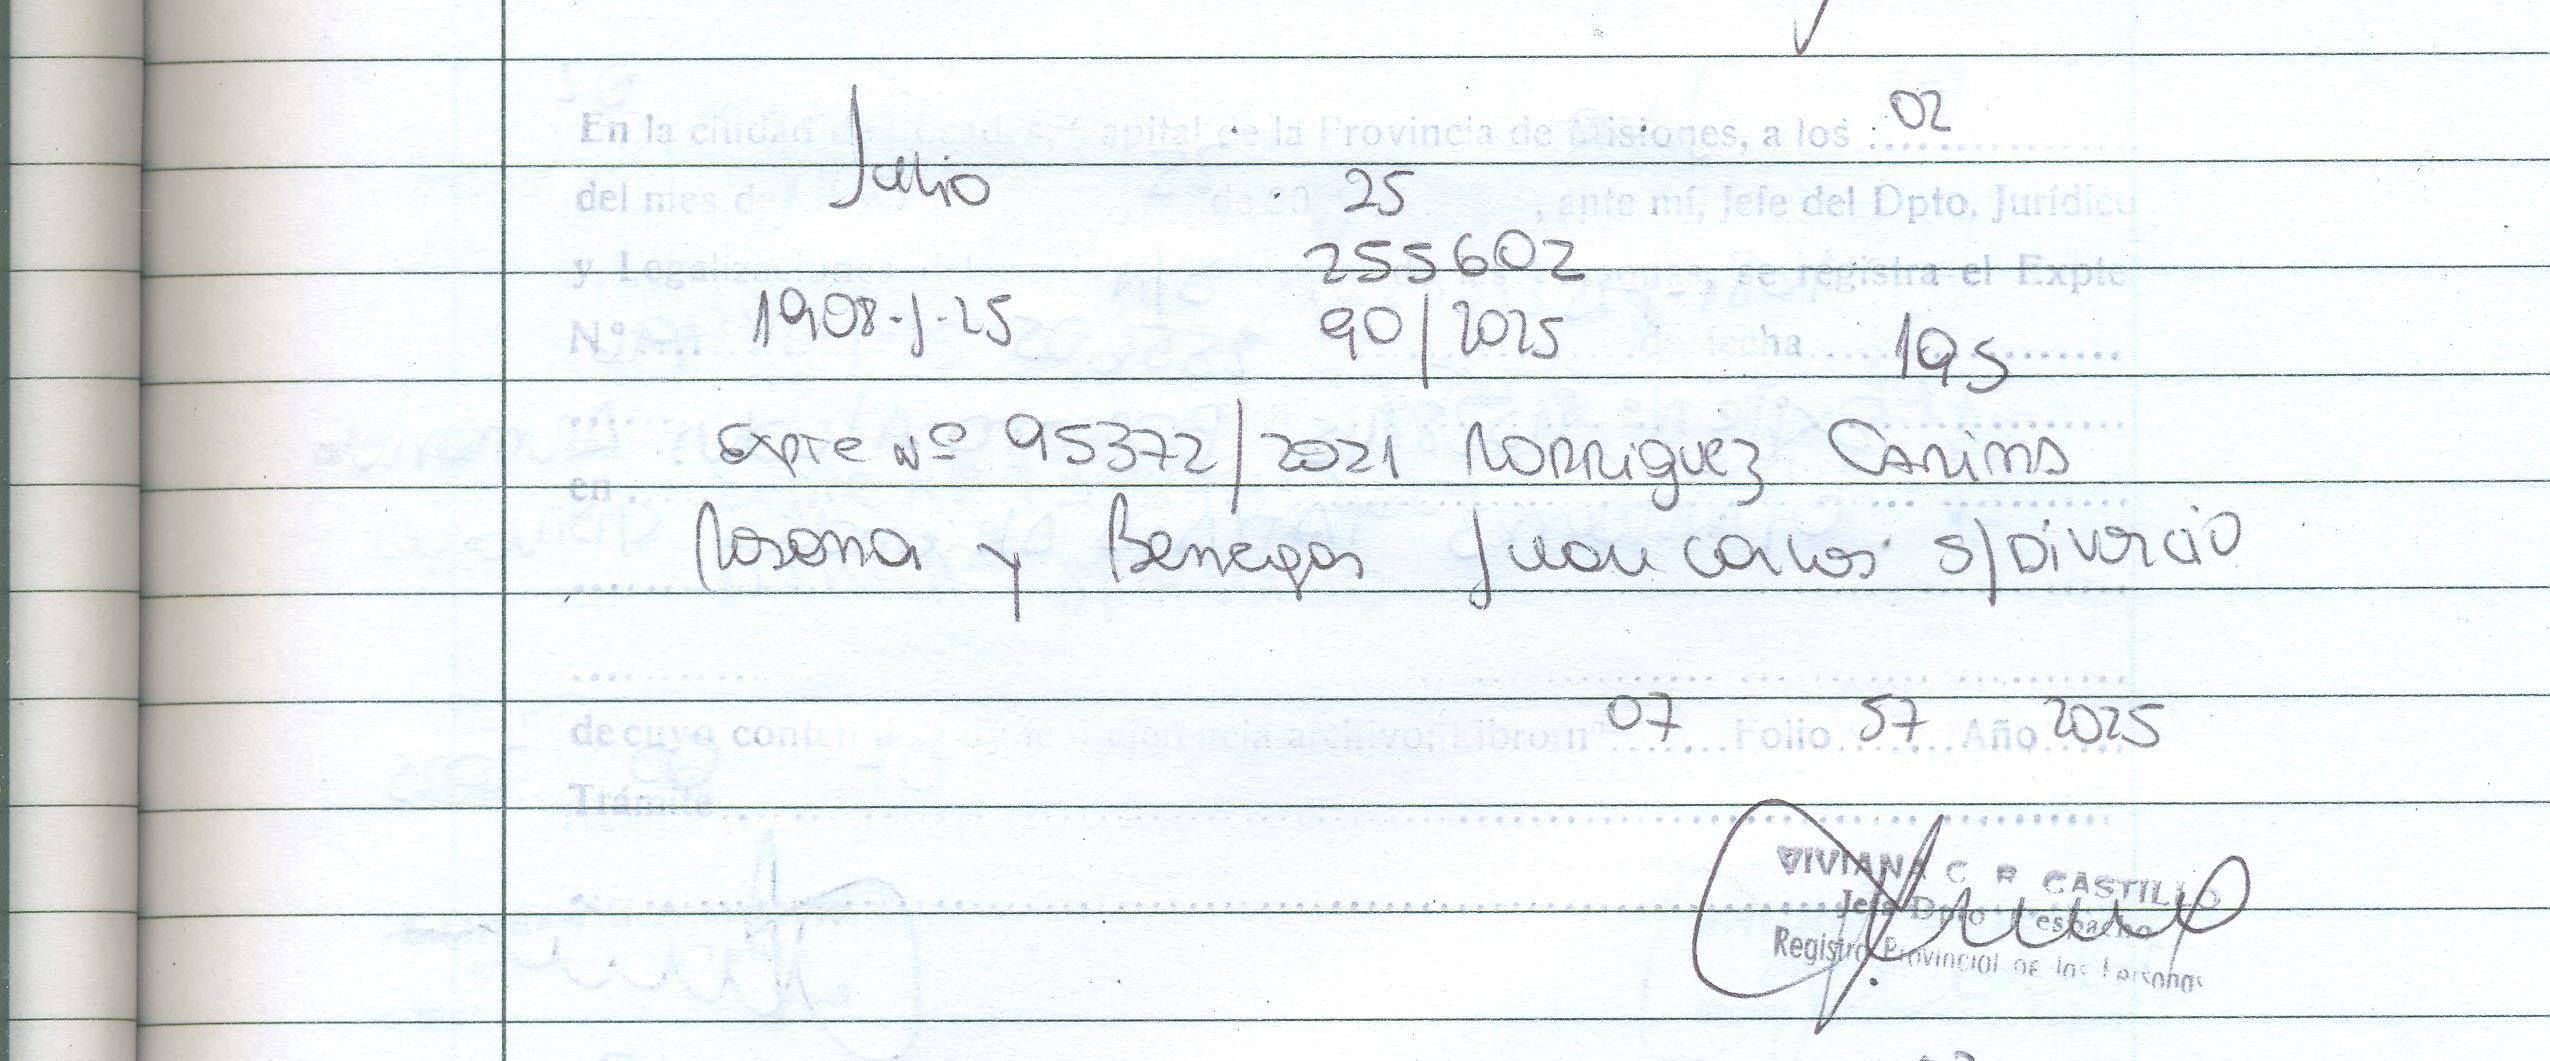 En la ciudad de Posadas, Capital de la Provincia de Misiones, a los 02
del mes de Julio de 20 25, ante mí, Jefe del Dpto. Jurídico
255602
y Legalizaciones se registra el Expte
Nº 1908-J-25 90/2025 de fecha 195
Expte Nº 95372/2021 Rodriguez Carina
en
Rosana y Benegas Juan Carlos s/Divorcio
de cuyo contenido y referencia archivo, Libro nº 07 Folio 57 Año 2025
Trámite
VIVIANA C R CASTILLO
Jefa Dpto Despacho
Registro Provincial de las Personas